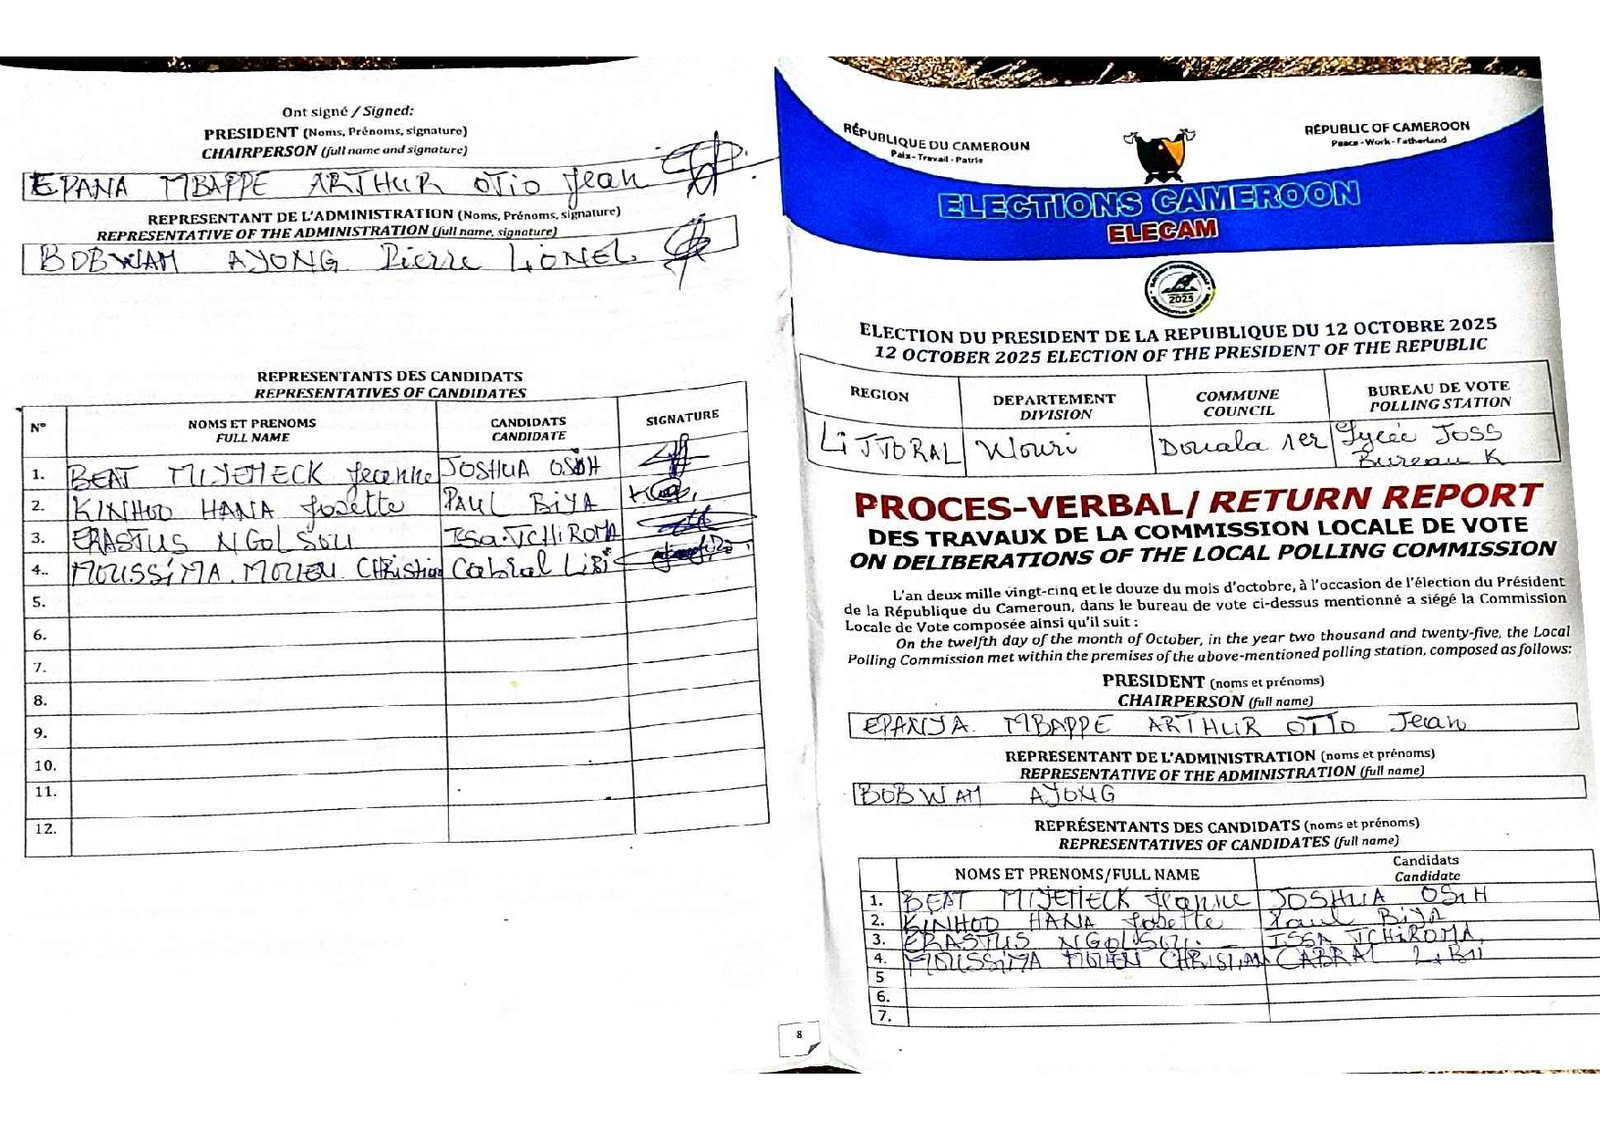 Ont signé / Signed:
PRESIDENT (Noms, Prénoms, signature)
CHAIRPERSON (full name and signature)
EPANA MBAPPE ARTHUR OTTO Jean
REPRESENTANT DE L'ADMINISTRATION (Noms, Prénoms, signature)
REPRESENTATIVE OF THE ADMINISTRATION (full name, signature)
BOBWAM AYONG Pierre LIONEL
REPRESENTANTS DES CANDIDATS
REPRESENTATIVES OF CANDIDATES
N° NOMS ET PRENOMS CANDIDATS SIGNATURE
FULL NAME CANDIDATE
1. BEAT MIJEMECK Jeanne JOSHUA OSIH
2. KINHOD HANA Josette PAUL BIYA
3. ERASTUS NGOLSOU ISSA TCHIROMA
4.. MOUSSIMA MOUEN Christian Cabral LIBI
5.
6.
7.
8.
9.
10.
11.
12.
8
RÉPUBLIQUE DU CAMEROUN
Paix - Travail - Patrie
REPUBLIC OF CAMEROON
Peace - Work - Fatherland
ELECTIONS CAMEROON
ELECAM
2025
ELECTION DU PRESIDENT DE LA REPUBLIQUE DU 12 OCTOBRE 2025
12 OCTOBER 2025 ELECTION OF THE PRESIDENT OF THE REPUBLIC
REGION DEPARTEMENT COMMUNE BUREAU DE VOTE
DIVISION COUNCIL POLLING STATION
LITTORAL Wouri Douala 1er Lycée JOSS
Bureau K
PROCES-VERBAL / RETURN REPORT
DES TRAVAUX DE LA COMMISSION LOCALE DE VOTE
ON DELIBERATIONS OF THE LOCAL POLLING COMMISSION
L'an deux mille vingt-cinq et le douze du mois d'octobre, à l'occasion de l'élection du Président
de la République du Cameroun, dans le bureau de vote ci-dessus mentionné a siégé la Commission
Locale de Vote composée ainsi qu'il suit :
On the twelfth day of the month of October, in the year two thousand and twenty-five, the Local
Polling Commission met within the premises of the above-mentioned polling station, composed as follows:
PRESIDENT (noms et prénoms)
CHAIRPERSON (full name)
EPANJA MBAPPE ARTHUR OTTO Jean
REPRESENTANT DE L'ADMINISTRATION (noms et prénoms)
REPRESENTATIVE OF THE ADMINISTRATION (full name)
BOBWAM AYONG
REPRÉSENTANTS DES CANDIDATS (noms et prénoms)
REPRESENTATIVES OF CANDIDATES (full name)
NOMS ET PRENOMS/FULL NAME Candidats
Candidate
1. BEAT MIJEMECK Jeanne JOSHUA OSIH
2. KINHOD HANA Josette Paul BIYA
3. ERASTUS NGOLSOU. ISSA TCHIROMA
4. MOUSSIMA MOUEN CHRISTIAN CABRAL LIBII
5
6.
7.